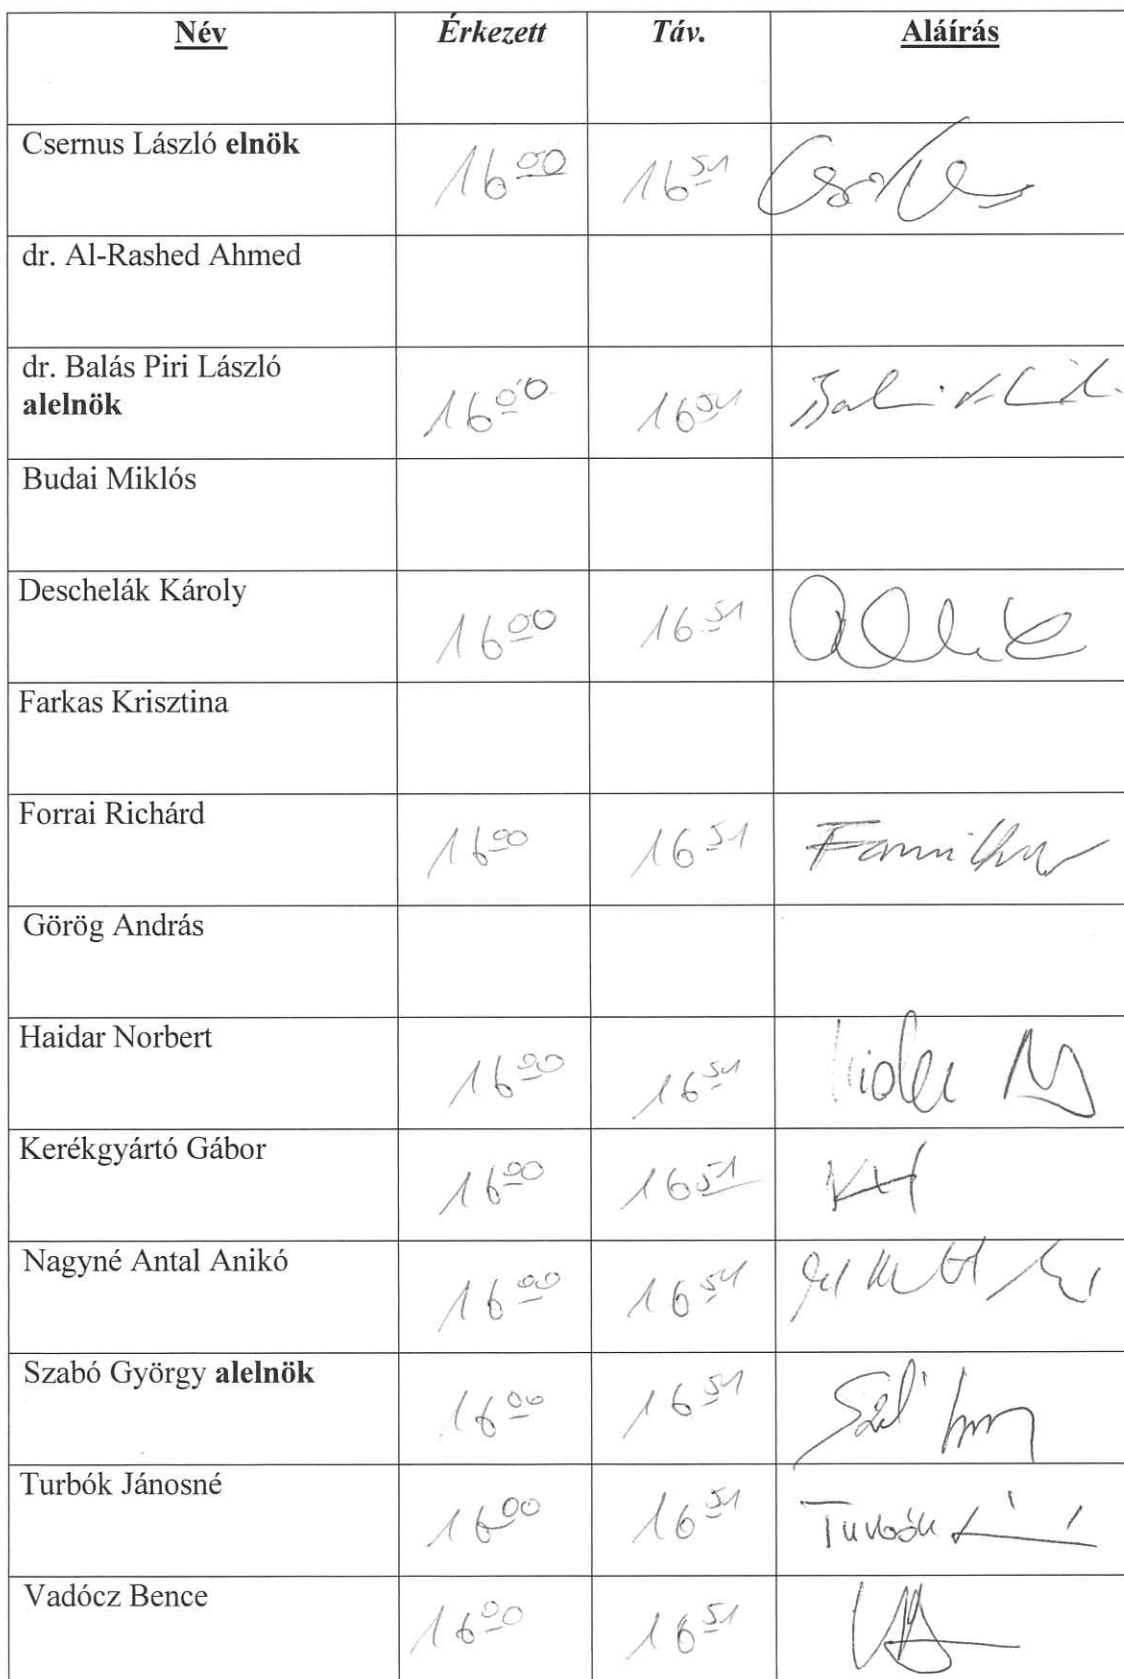 Név Érkezett Táv. Aláírás
Csernus László elnök 16 00 16 51
dr. Al-Rashed Ahmed
dr. Balás Piri László
alelnök 16 00 16 51
Budai Miklós
Deschelák Károly 16 00 16 51
Farkas Krisztina
Forrai Richárd 16 00 16 51
Görög András
Haidar Norbert 16 00 16 51
Kerékgyártó Gábor 16 00 16 51
Nagyné Antal Anikó 16 00 16 51
Szabó György alelnök 16 00 16 51
Turbók Jánosné 16 00 16 51 Turbók
Vadócz Bence 16 00 16 51